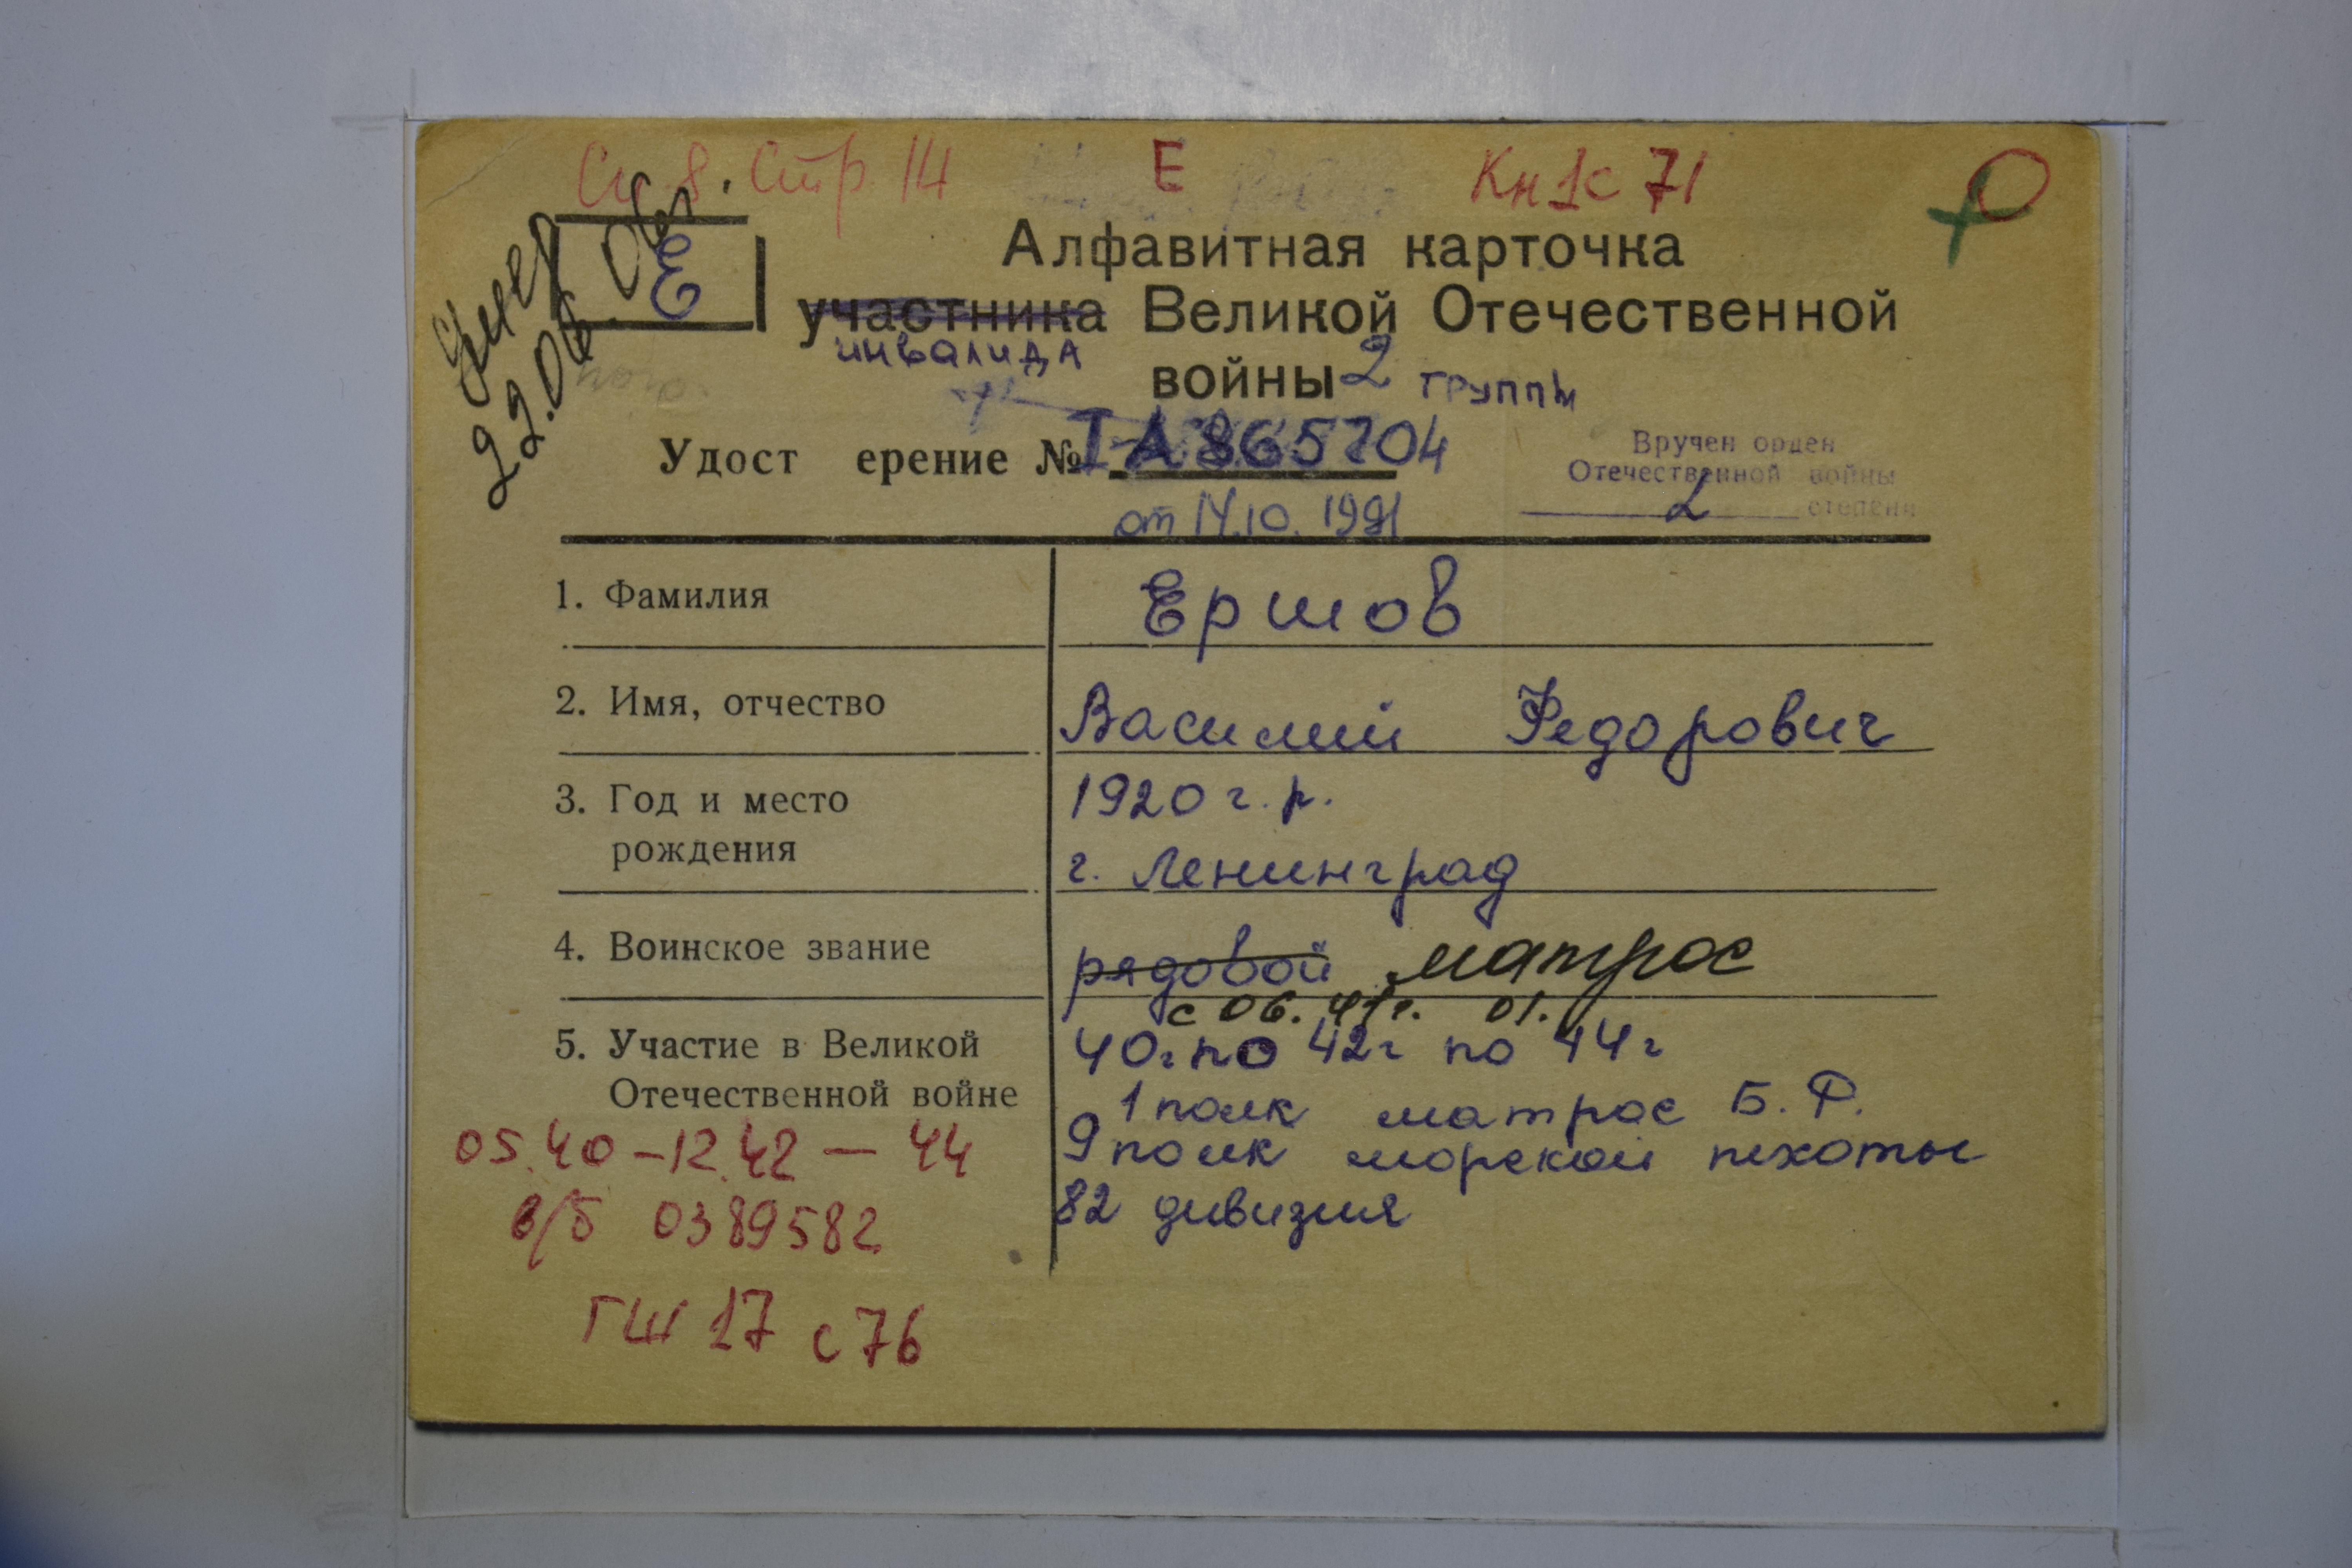 Сп 8. Стр 14 Е Кн 1 с 71
Умер
22.06.06г
Е
Алфавитная карточка
участника Великой Отечественной
инвалида
войны 2 группы
Удост ерение № IА 865704
от 14.10.1991
Вручен орден
Отечественной войны
2 степени
1. Фамилия Ершов
2. Имя, отчество Василий Федорович
3. Год и место 1920 г.р.
рождения г. Ленинград
4. Воинское звание рядовой матрос
с 06.41г. 01.
5. Участие в Великой 40г по 42г по 44г
Отечественной войне 1 полк матрос Б.Ф.
9 полк морской пехоты
82 дивизия
05.40 – 12.42 – 44
в/б 0389582
ГШ 17 с 76